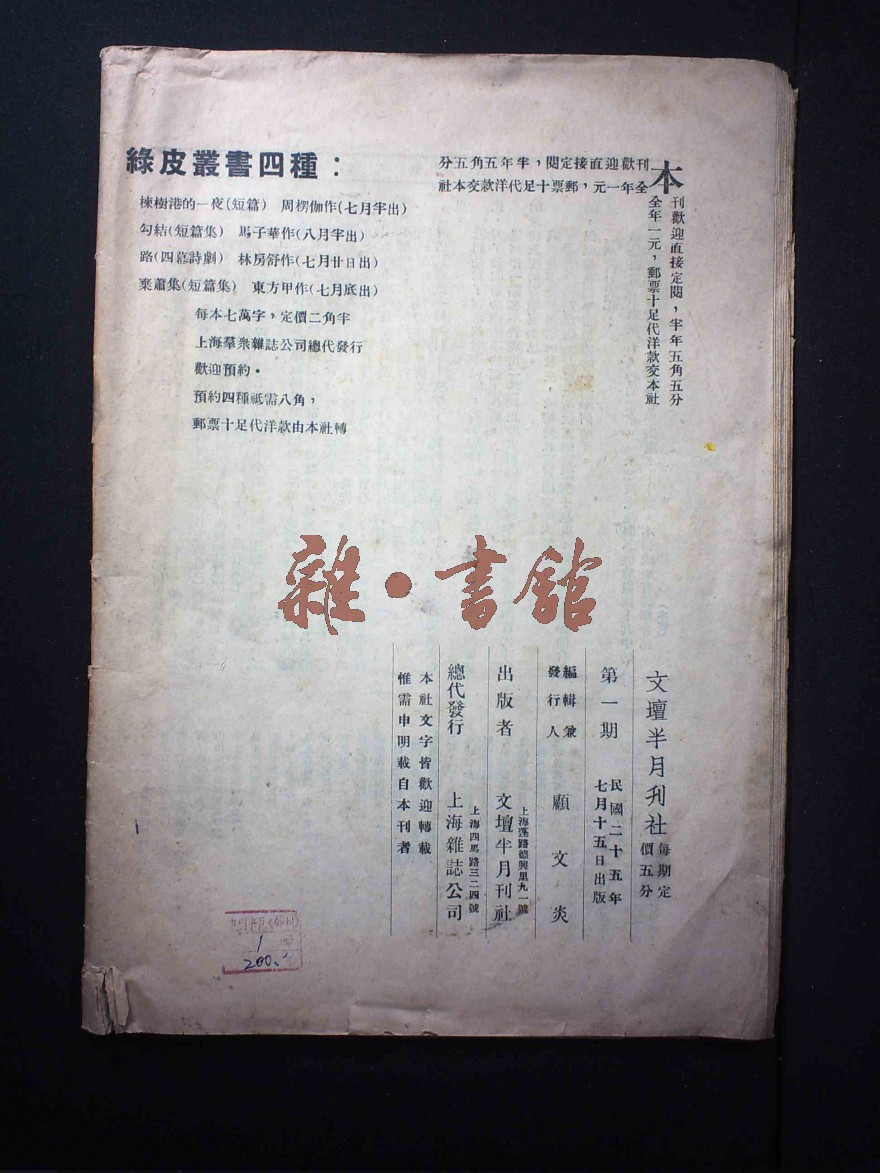 綠皮叢書四種：
楝樹港的一夜(短篇) 周楞伽作(七月半出)
勾結(短篇集) 馬子華作(八月半出)
路(四幕詩劇) 林房舒作(七月廿日出)
棄蕭集(短篇集) 東方甲作(七月底出)
每本七萬字，定價二角半
上海羣衆雜誌公司總代發行
歡迎預約·
預約四種祇需八角，
郵票十足代洋款由本社轉
本
刊歡迎直接定閱，半年五角五分
全年一元，郵票十足代洋款交本社
刊歡迎直接定閱，半年五角五分
全年一元，郵票十足代洋款交本社
雜·書館
文壇半月刊社 每期定價五分
第一期 民國二十五年七月十五日出版
編輯兼發行人 顧文炎
上海蓬路德興里九一號
出版者 文壇半月刊社
上海四馬路三二四號
總代發行 上海雜誌公司
本社文字皆歡迎轉載
惟需申明載自本刊者
1
200.